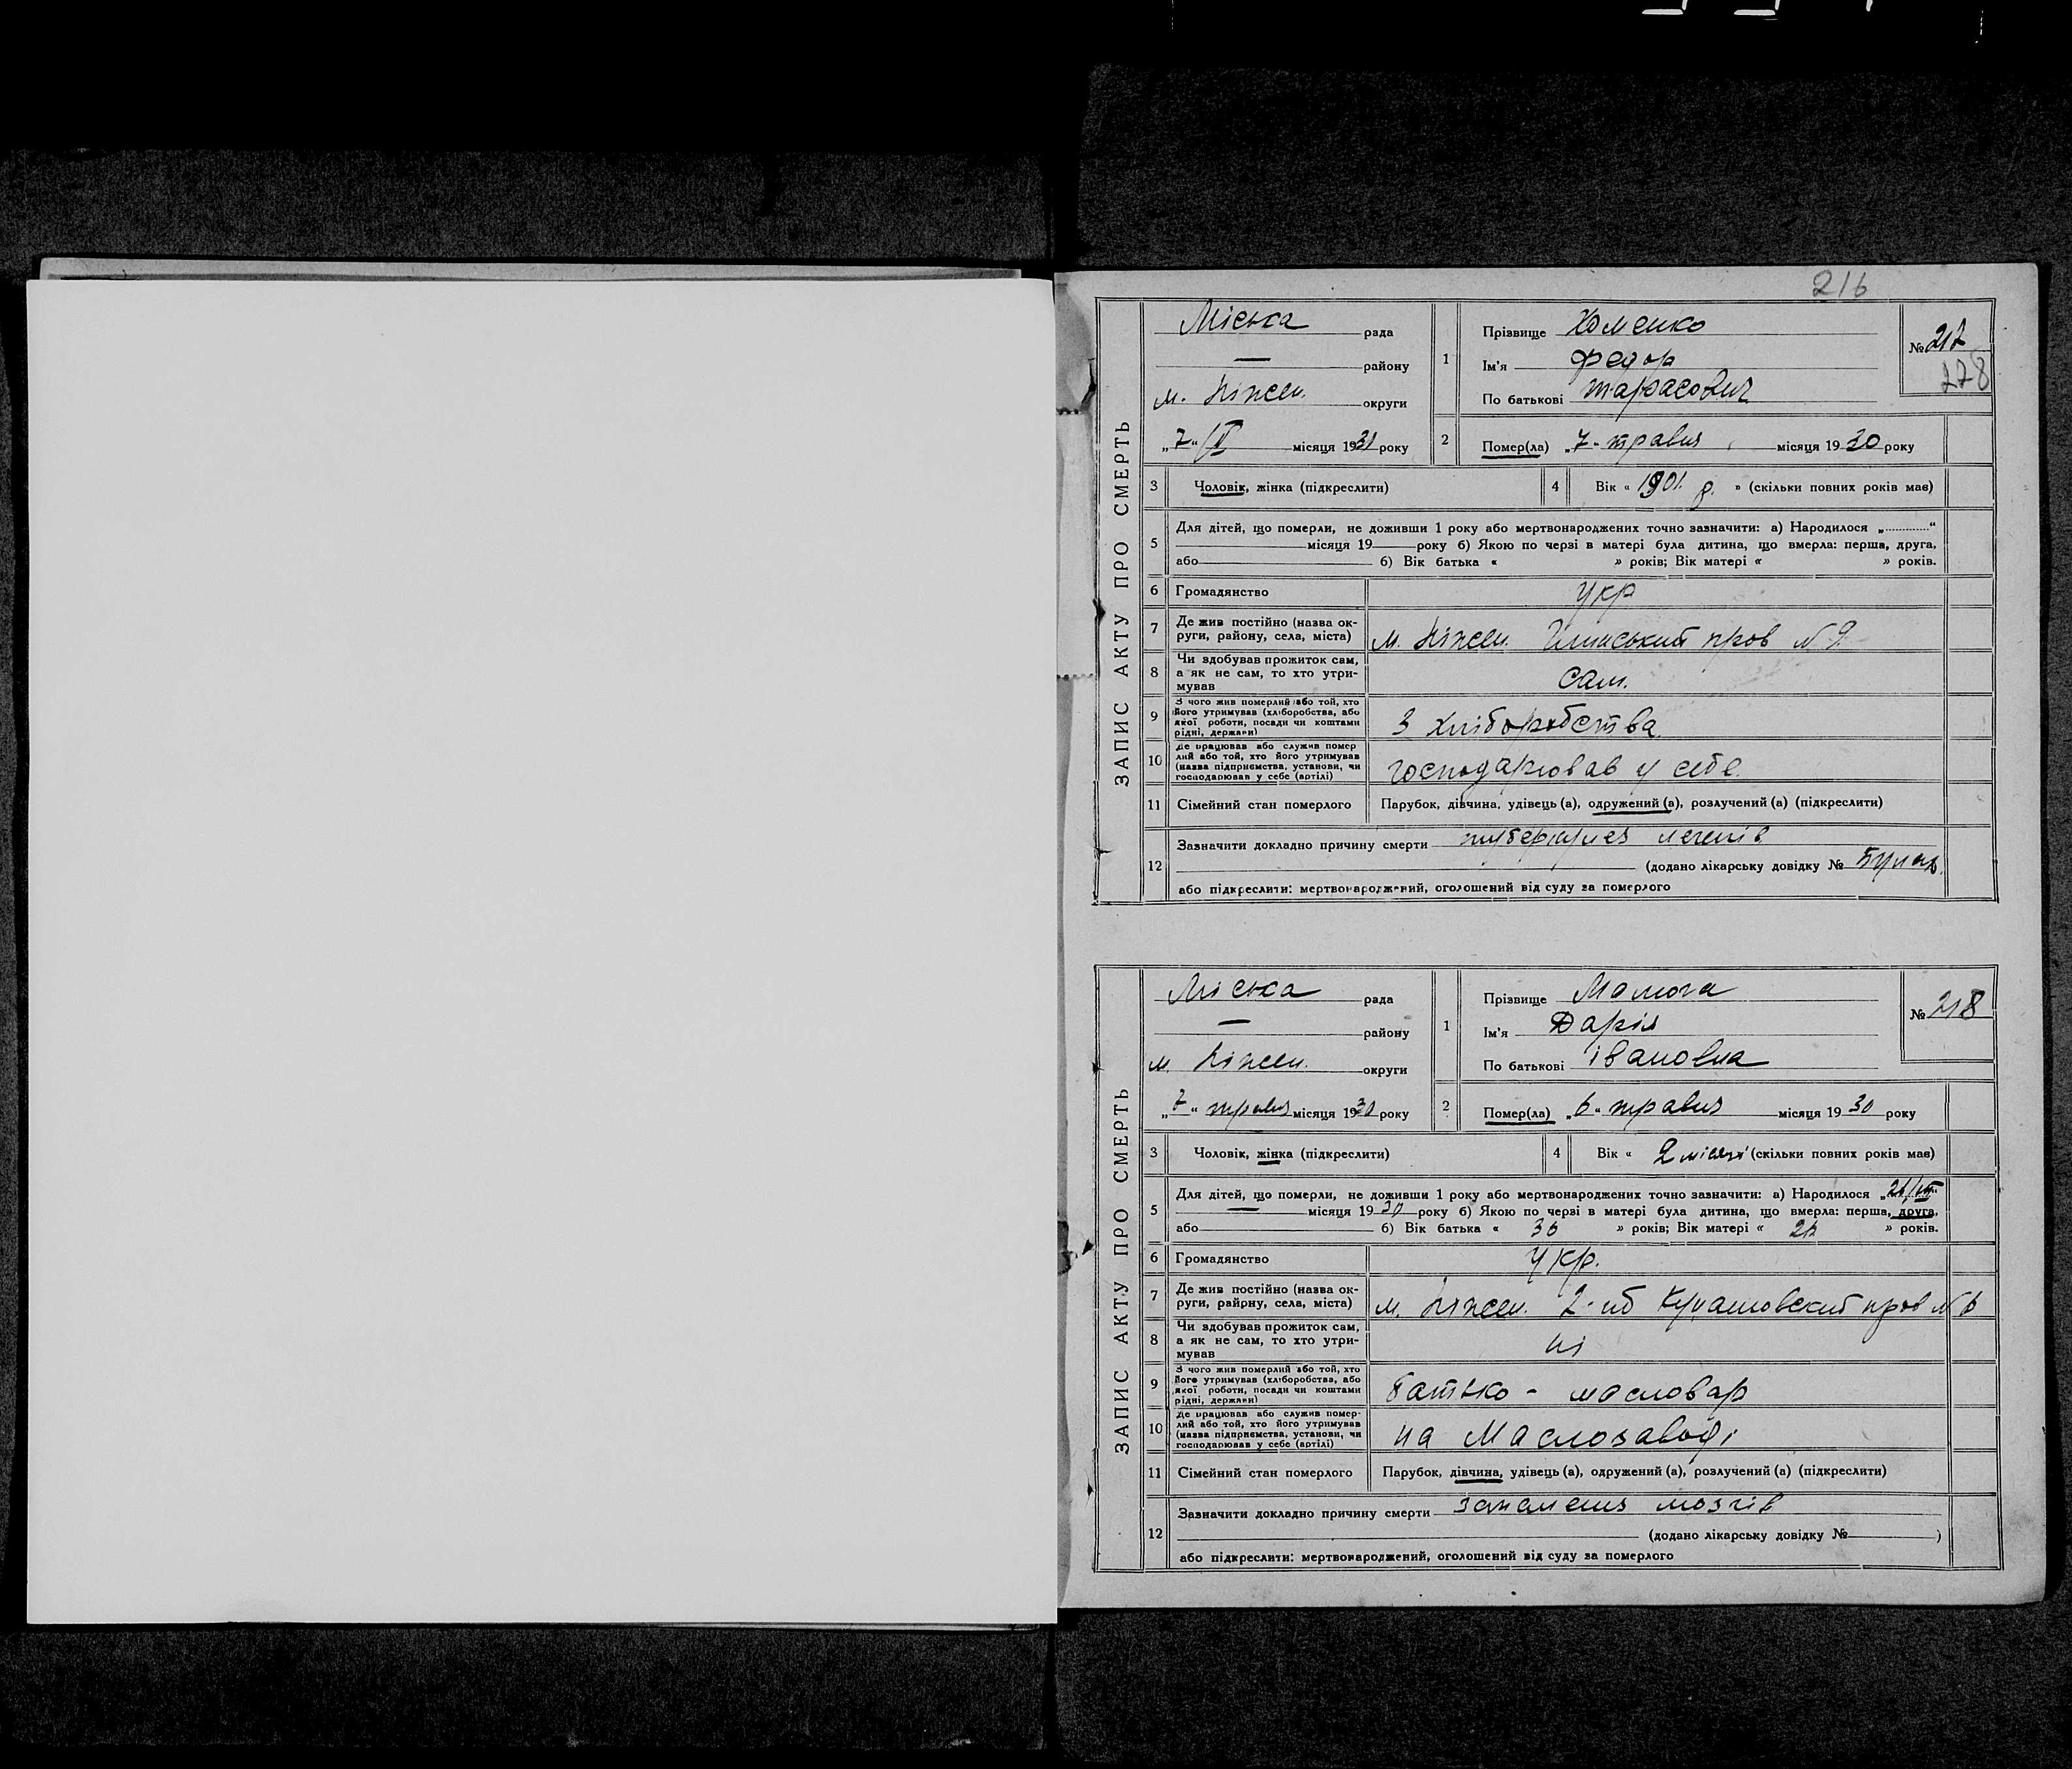 216
ЗАПИС АКТУ ПРО СМЕРТЬ
Міська рада
— району
м. Ніжен. округи
„7“ /V місяця 1930 року
1
Прізвище Хоменко
Ім'я Федор
По батькові Тарасович
№ 217
228
2
Помер(ла) „7“ травня місяця 1930 року
3 Чоловік, жінка (підкреслити)
4 Вік « 1901 р. » (скільки повних років має)
5 Для дітей, що померли, не доживши 1 року або мертвонароджених точно зазначити: а) Народилося „............“
місяця 19 року б) Якою по черзі в матері була дитина, що вмерла: перша, друга,
або б) Вік батька « » років; Вік матері « » років.
6 Громадянство укр
7 Де жив постійно (назва ок-
руги, району, села, міста) м. Ніжен. пров № 9
8 Чи здобував прожиток сам,
а як не сам, то хто утри-
мував сам.
9 З чого жив померлий або той, хто
його утримував (хліборобства, або
якої роботи, посади чи коштами
рідні, держави) З хліборобства
10 Де працював або служив помер
лий або той, хто його утримував
(назва підприємства, установи, чи
господарював у себе (артілі) господарював у себе
11 Сімейний стан померлого Парубок, дівчина, удівець (а), одружений (а), розлучений (а) (підкреслити)
12 Зазначити докладно причину смерти туберкулез легенів
(додано лікарську довідку №
або підкреслити: мертвонароджений, оголошений від суду за померлого
ЗАПИС АКТУ ПРО СМЕРТЬ
Міська рада
— району
м. Ніжен. округи
„7“ травня місяця 1930 року
1
Прізвище
Ім'я Дарія
По батькові Івановна
№ 218
2
Помер(ла) „6“ травня місяця 1930 року
3 Чоловік, жінка (підкреслити)
4 Вік « 2 місяці (скільки повних років має)
5 Для дітей, що померли, не доживши 1 року або мертвонароджених точно зазначити: а) Народилося
— місяця 1930 року б) Якою по черзі в матері була дитина, що вмерла: перша, друга,
або б) Вік батька « » років; Вік матері « » років.
6 Громадянство укр.
7 Де жив постійно (назва ок-
руги, району, села, міста) м. Ніжен. пров № 6
8 Чи здобував прожиток сам,
а як не сам, то хто утри-
мував ні
9 З чого жив померлий або той, хто
його утримував (хліборобства, або
якої роботи, посади чи коштами
рідні, держави) батько - масловар
10 Де працював або служив помер-
лий або той, хто його утримував
(назва підприємства, установи, чи
господарював у себе (артілі) на Маслозаводі
11 Сімейний стан померлого Парубок, дівчина, удівець (а), одружений (а), розлучений (а) (підкреслити)
12 Зазначити докладно причину смерти запалення мозгів
(додано лікарську довідку № )
або підкреслити: мертвонароджений, оголошений від суду за померлого